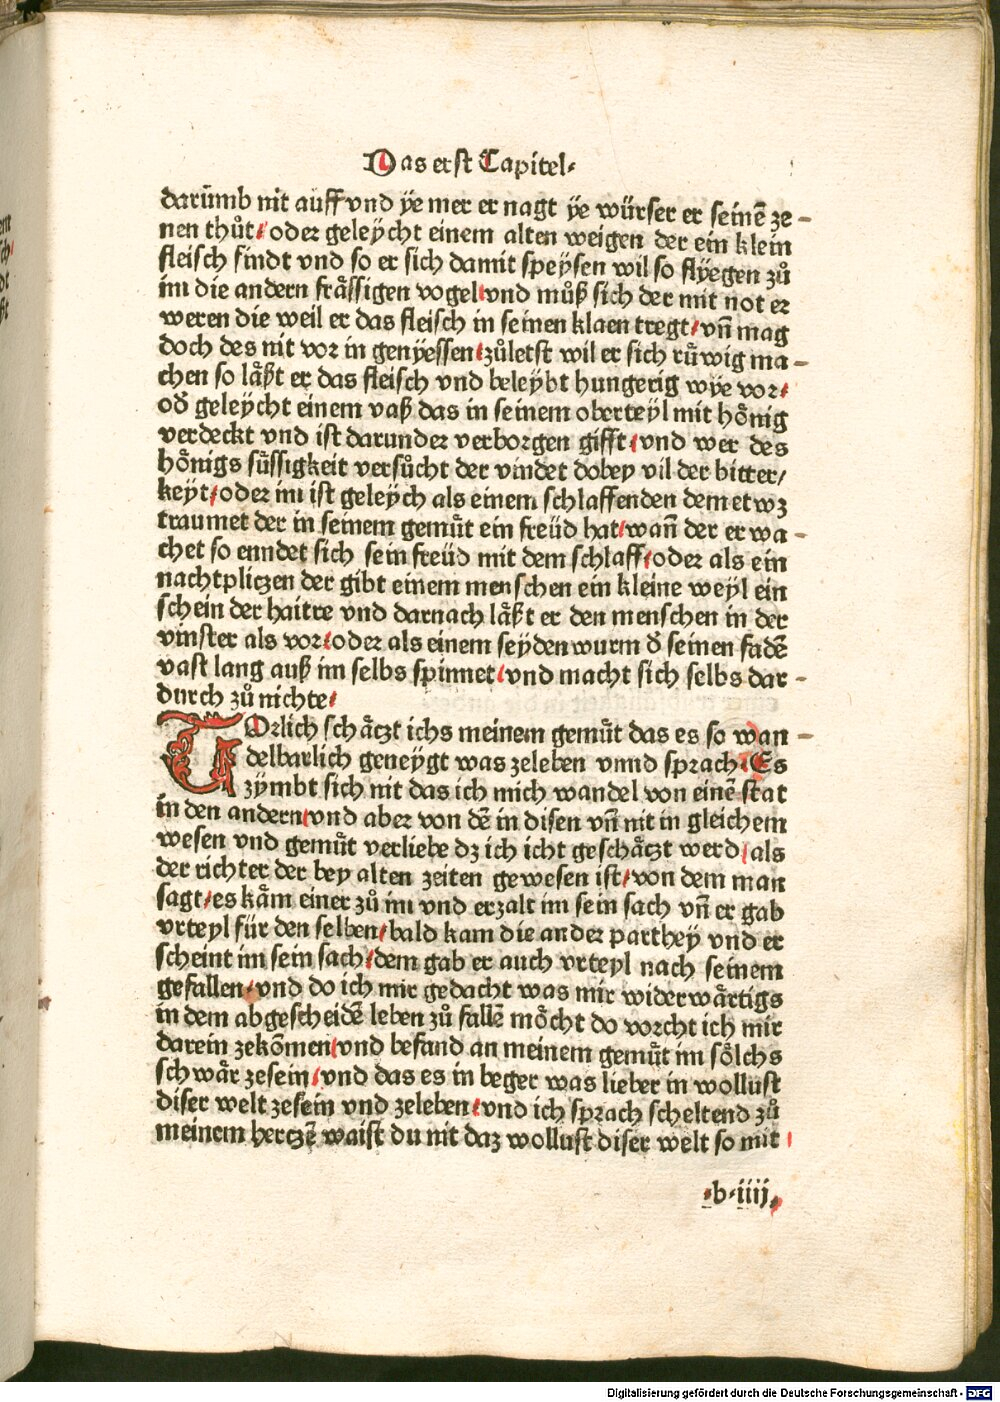 Das erst Capitel·
darūmb nit auff vnd ÿe mer er nagt ÿe würser er seinē ze-
nen thůt/ oder geleÿcht einem alten weigen der ein klein
fleisch findt vnd so er sich damit speÿsen wil so flÿegen zů
im die andern frässigen vogel/ vnd můß sich der mit not er
weren die weil er das fleisch in seinen klaen tregt/ vñ mag
doch des nit vor in genÿessen/ zůletst wil er sich rüwig ma-
chen so läßt er das fleisch vnd beleÿbt hungerig wÿe vor/
oď geleÿcht einem vaß das in seinem oberteÿl mit hönig
verdeckt vnd ist darunder verborgen gifft/ vnd wer des
hönigs süssigkeit versůcht der vindet dobey vil der bitter/
keÿt/ oder im ist geleÿch als einem schlaffenden dem etwz
traumet der in seinem gemüt ein freüd hat/ wañ der er wa-
chet so enndet sich sein freüd mit dem schlaff/ oder als ein
nachtpliczen der gibt einem menschen ein kleine weÿl ein
schein der haitre vnd darnach läßt er den menschen in der
vinster als vor/ oder als einem seÿden wurm ď seinen fadē
vast lang auß im selbs spinnet/ vnd macht sich selbs dar-
durch zů nichte/
VOrlich schäczt ichs meinem gemüt das es so wan-
delbarlich geneÿgt was zeleben vnnd sprach/ Es
zÿmbt sich nit das ich mich wandel von einē stat
in den andern/ vnd aber von dē in disen vñ nit in gleichem
wesen vnd gemüt verliebe dz ich icht geschäczt werd/ als
der richter der bey alten zeiten gewesen ist/ von dem man
sagt/ es käm einer zů im vnd erzalt im sein sach vñ er gab
vrteyl für den selben/ bald kam die ander partheÿ vnd er
scheint im sein sach/ dem gab er auch vrteyl nach seinem
gefallen/ vnd do ich mir gedacht was mir widerwärtigs
in dem abgescheidē leben zů fallē möcht do vorcht ich mir
darein zekōmen/ vnd befand an meinem gemüt im sölchs
schwär zesein/ vnd das es in beger was lieber in wollust
diser welt zesein vnd zeleben/ vnd ich sprach scheltend zů
meinem herczē waist du nit daz wollust diser welt so mit
·b·iiij·
Digitalisierung gefördert durch die Deutsche Forschungsgemeinschaft - DFG